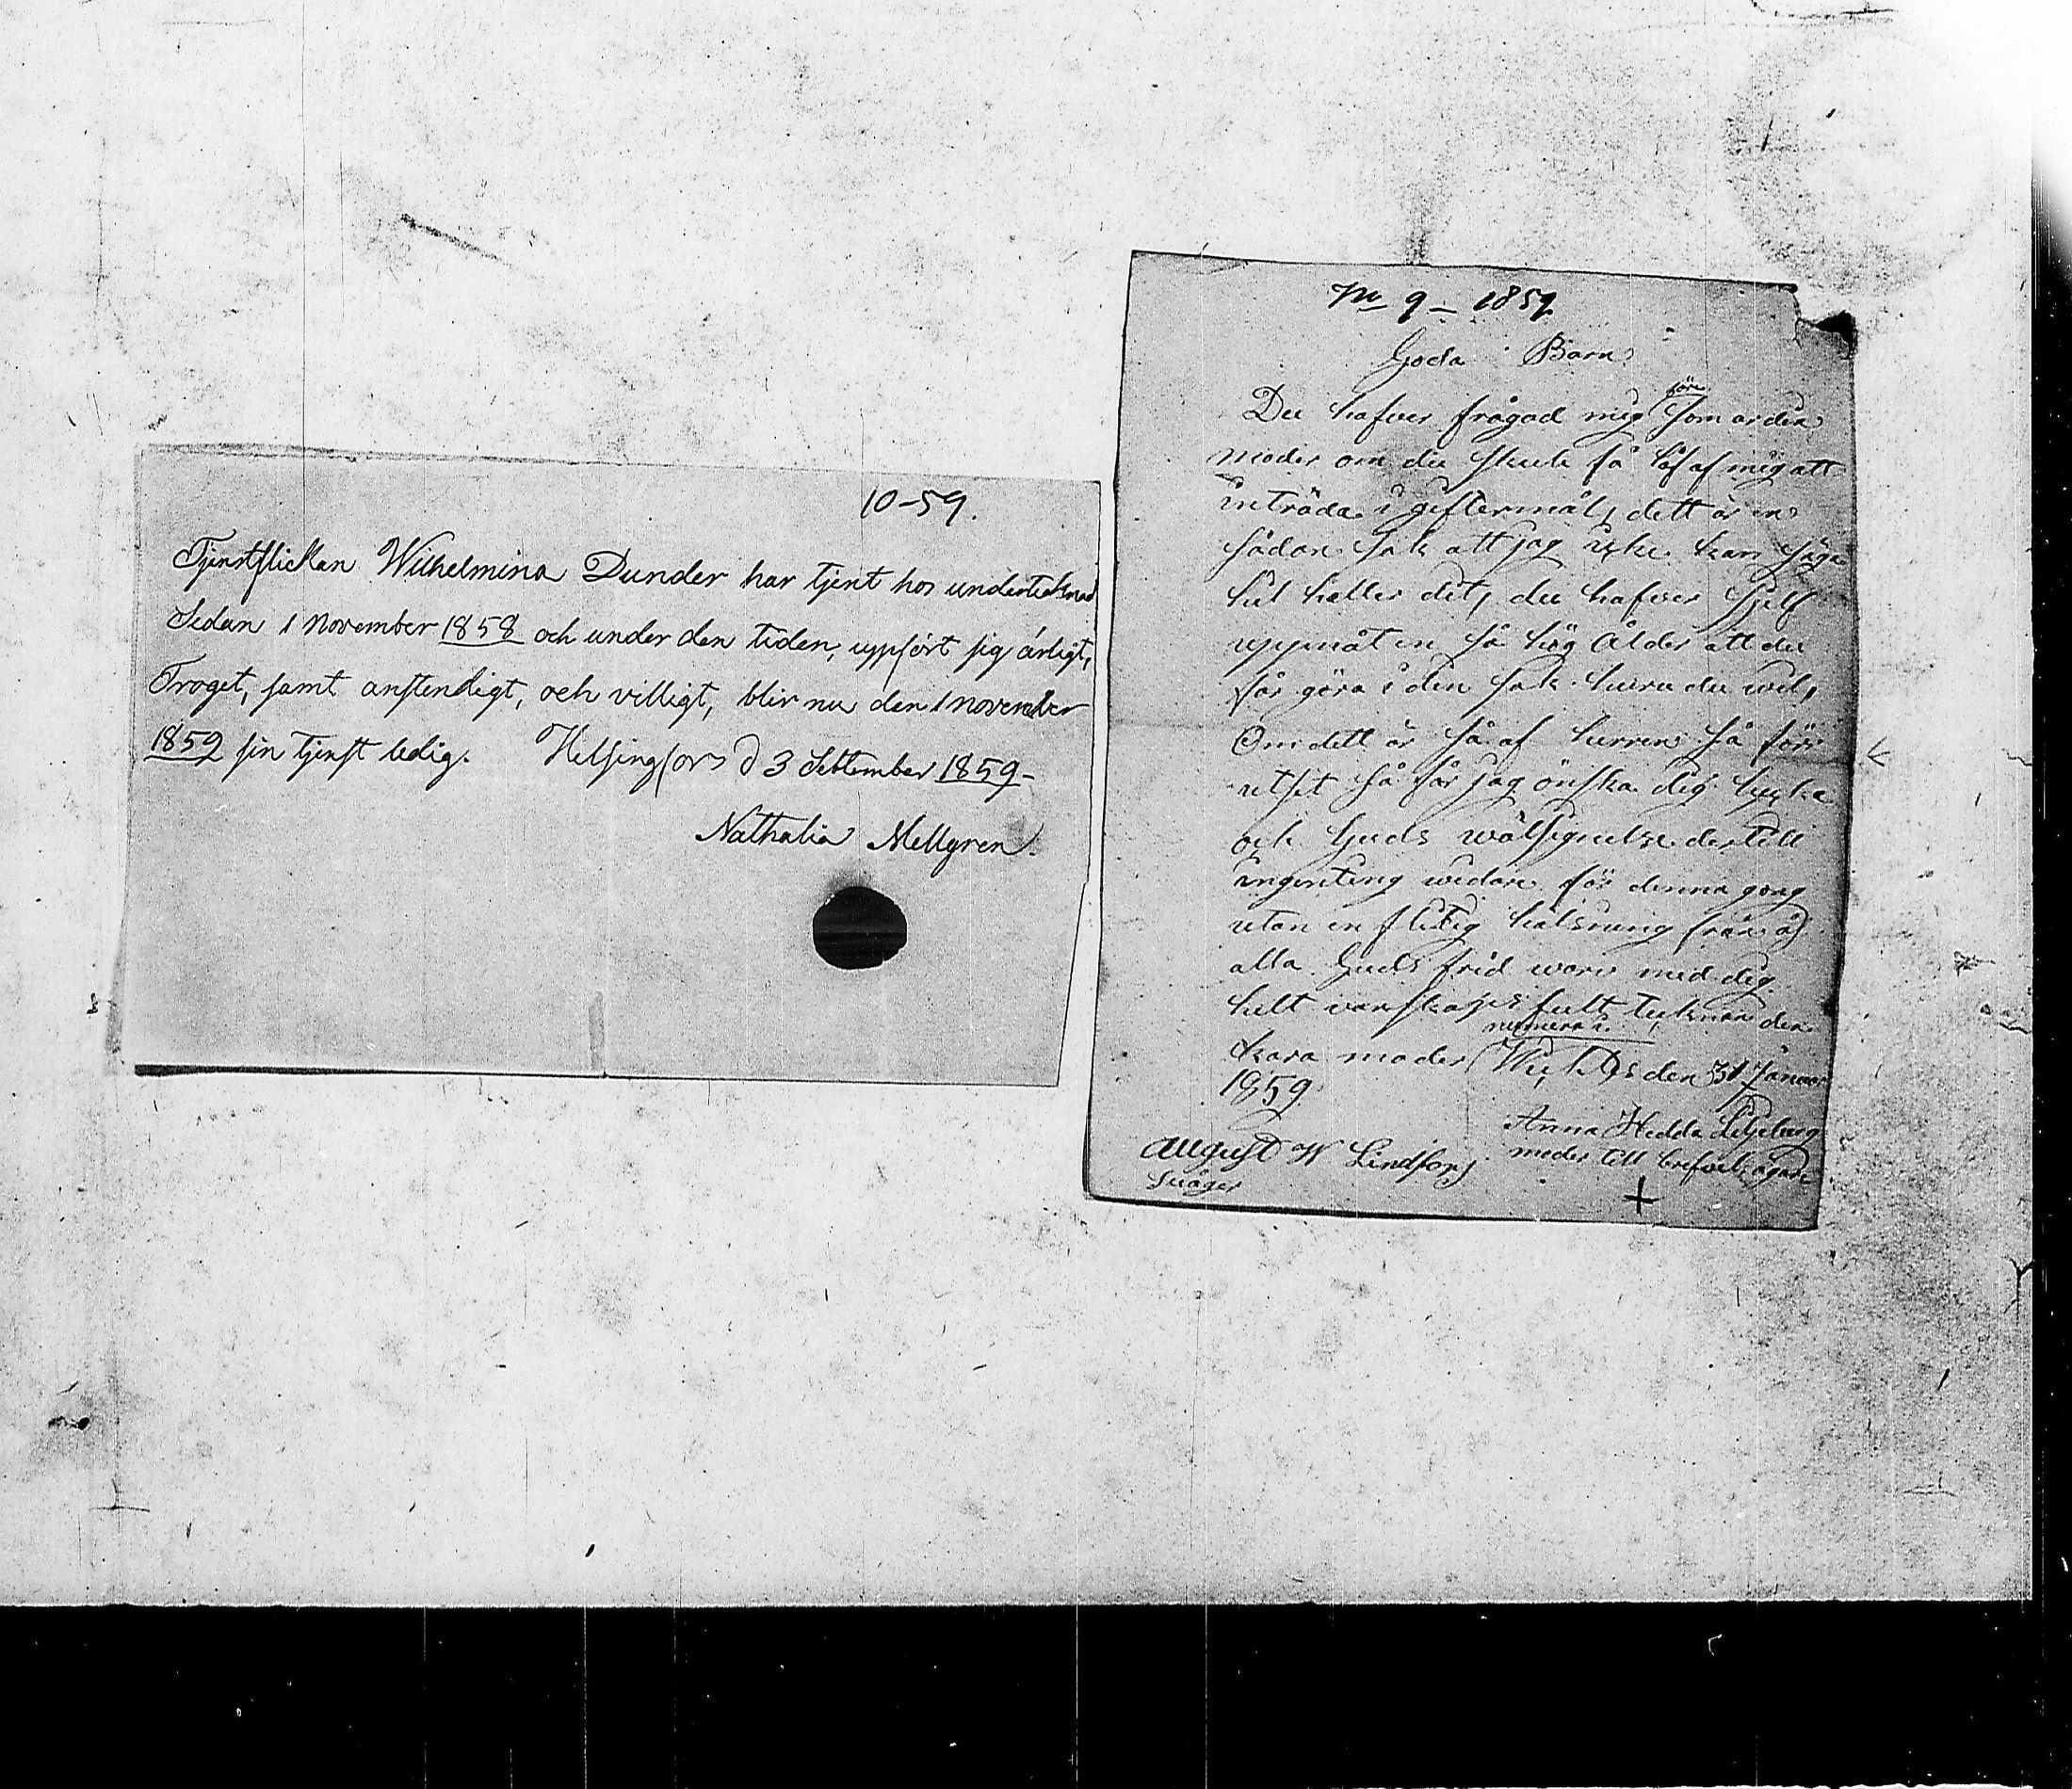 10-59.
Tjenstflickan Wilhelmina Dunder har tjent hos undertecknad
Sedan 1 November 1858 och under den tiden, uppfört sig ärligt,
Troget, samt anstendigt, och villigt, blir nu den 1 november
1859 sin tjenst ledig. Helsingfors d 3 September 1859-
Nathalia Mellgren.
No 9 - 1859
Goda Barn
Du hafver frågad mig som ar din
före
moder om du skule få låf af mig att
inträda i giftermål, dett är en
sådan sak att jag icke kan säga
hit heller dit, du hafver sjelf
uppnåt en så hög ålder att du
får göra i den sak huru du wil,
Om dett är så af herren så före
utset så får jag önska dig lycka
och Guds wälsignelse der till
ingenting widare för denna gong
utan en flitig hälsning från os
alla Guds frid ware med dig
helt vanskaps fult teknar din
kara moder den 31 Januar
1859
Anna Hedda
moder till brefvets ägare
August W Lindfors
Svåger
+